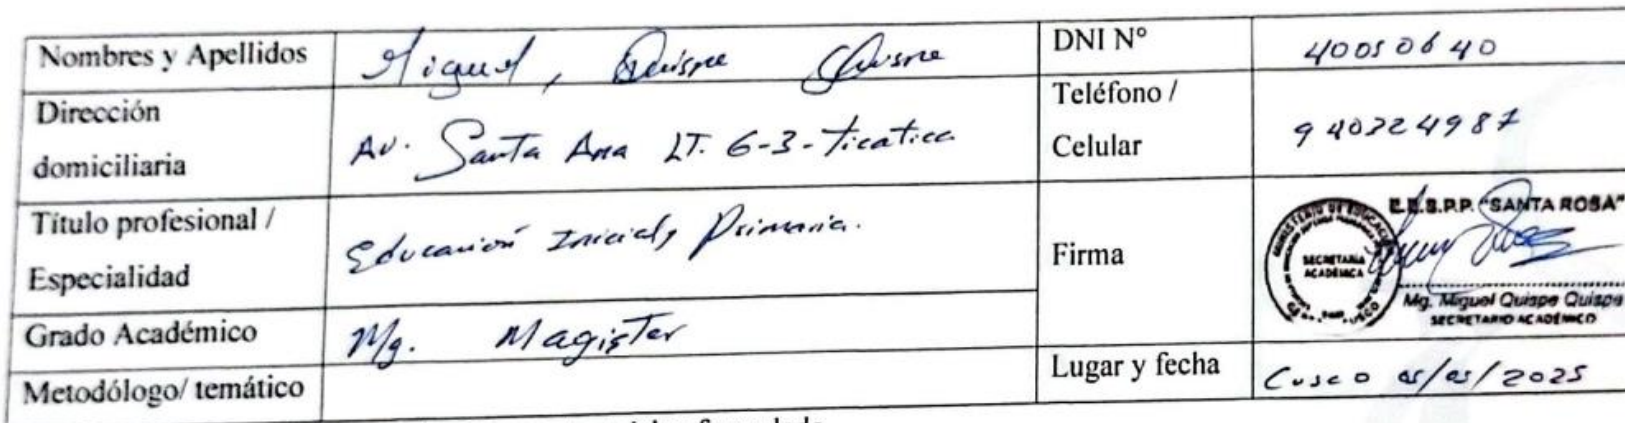 Nombres y Apellidos Miguel, Quispe Quispe DNI N° 40050640
Dirección domiciliaria Av. Santa Ana LT. 6-3-Ticatica Teléfono / Celular 940224987
Título profesional / Especialidad Educación Inicial, Primaria. Firma
E.E.S.P.P. "SANTA ROSA"
SECRETARIA
ACADÉMICA
Mg. Miguel Quispe Quispe
SECRETARIO ACADÉMICO
Grado Académico Mg. Magister
Metodólogo/ temático Lugar y fecha Cusco 05/05/2025